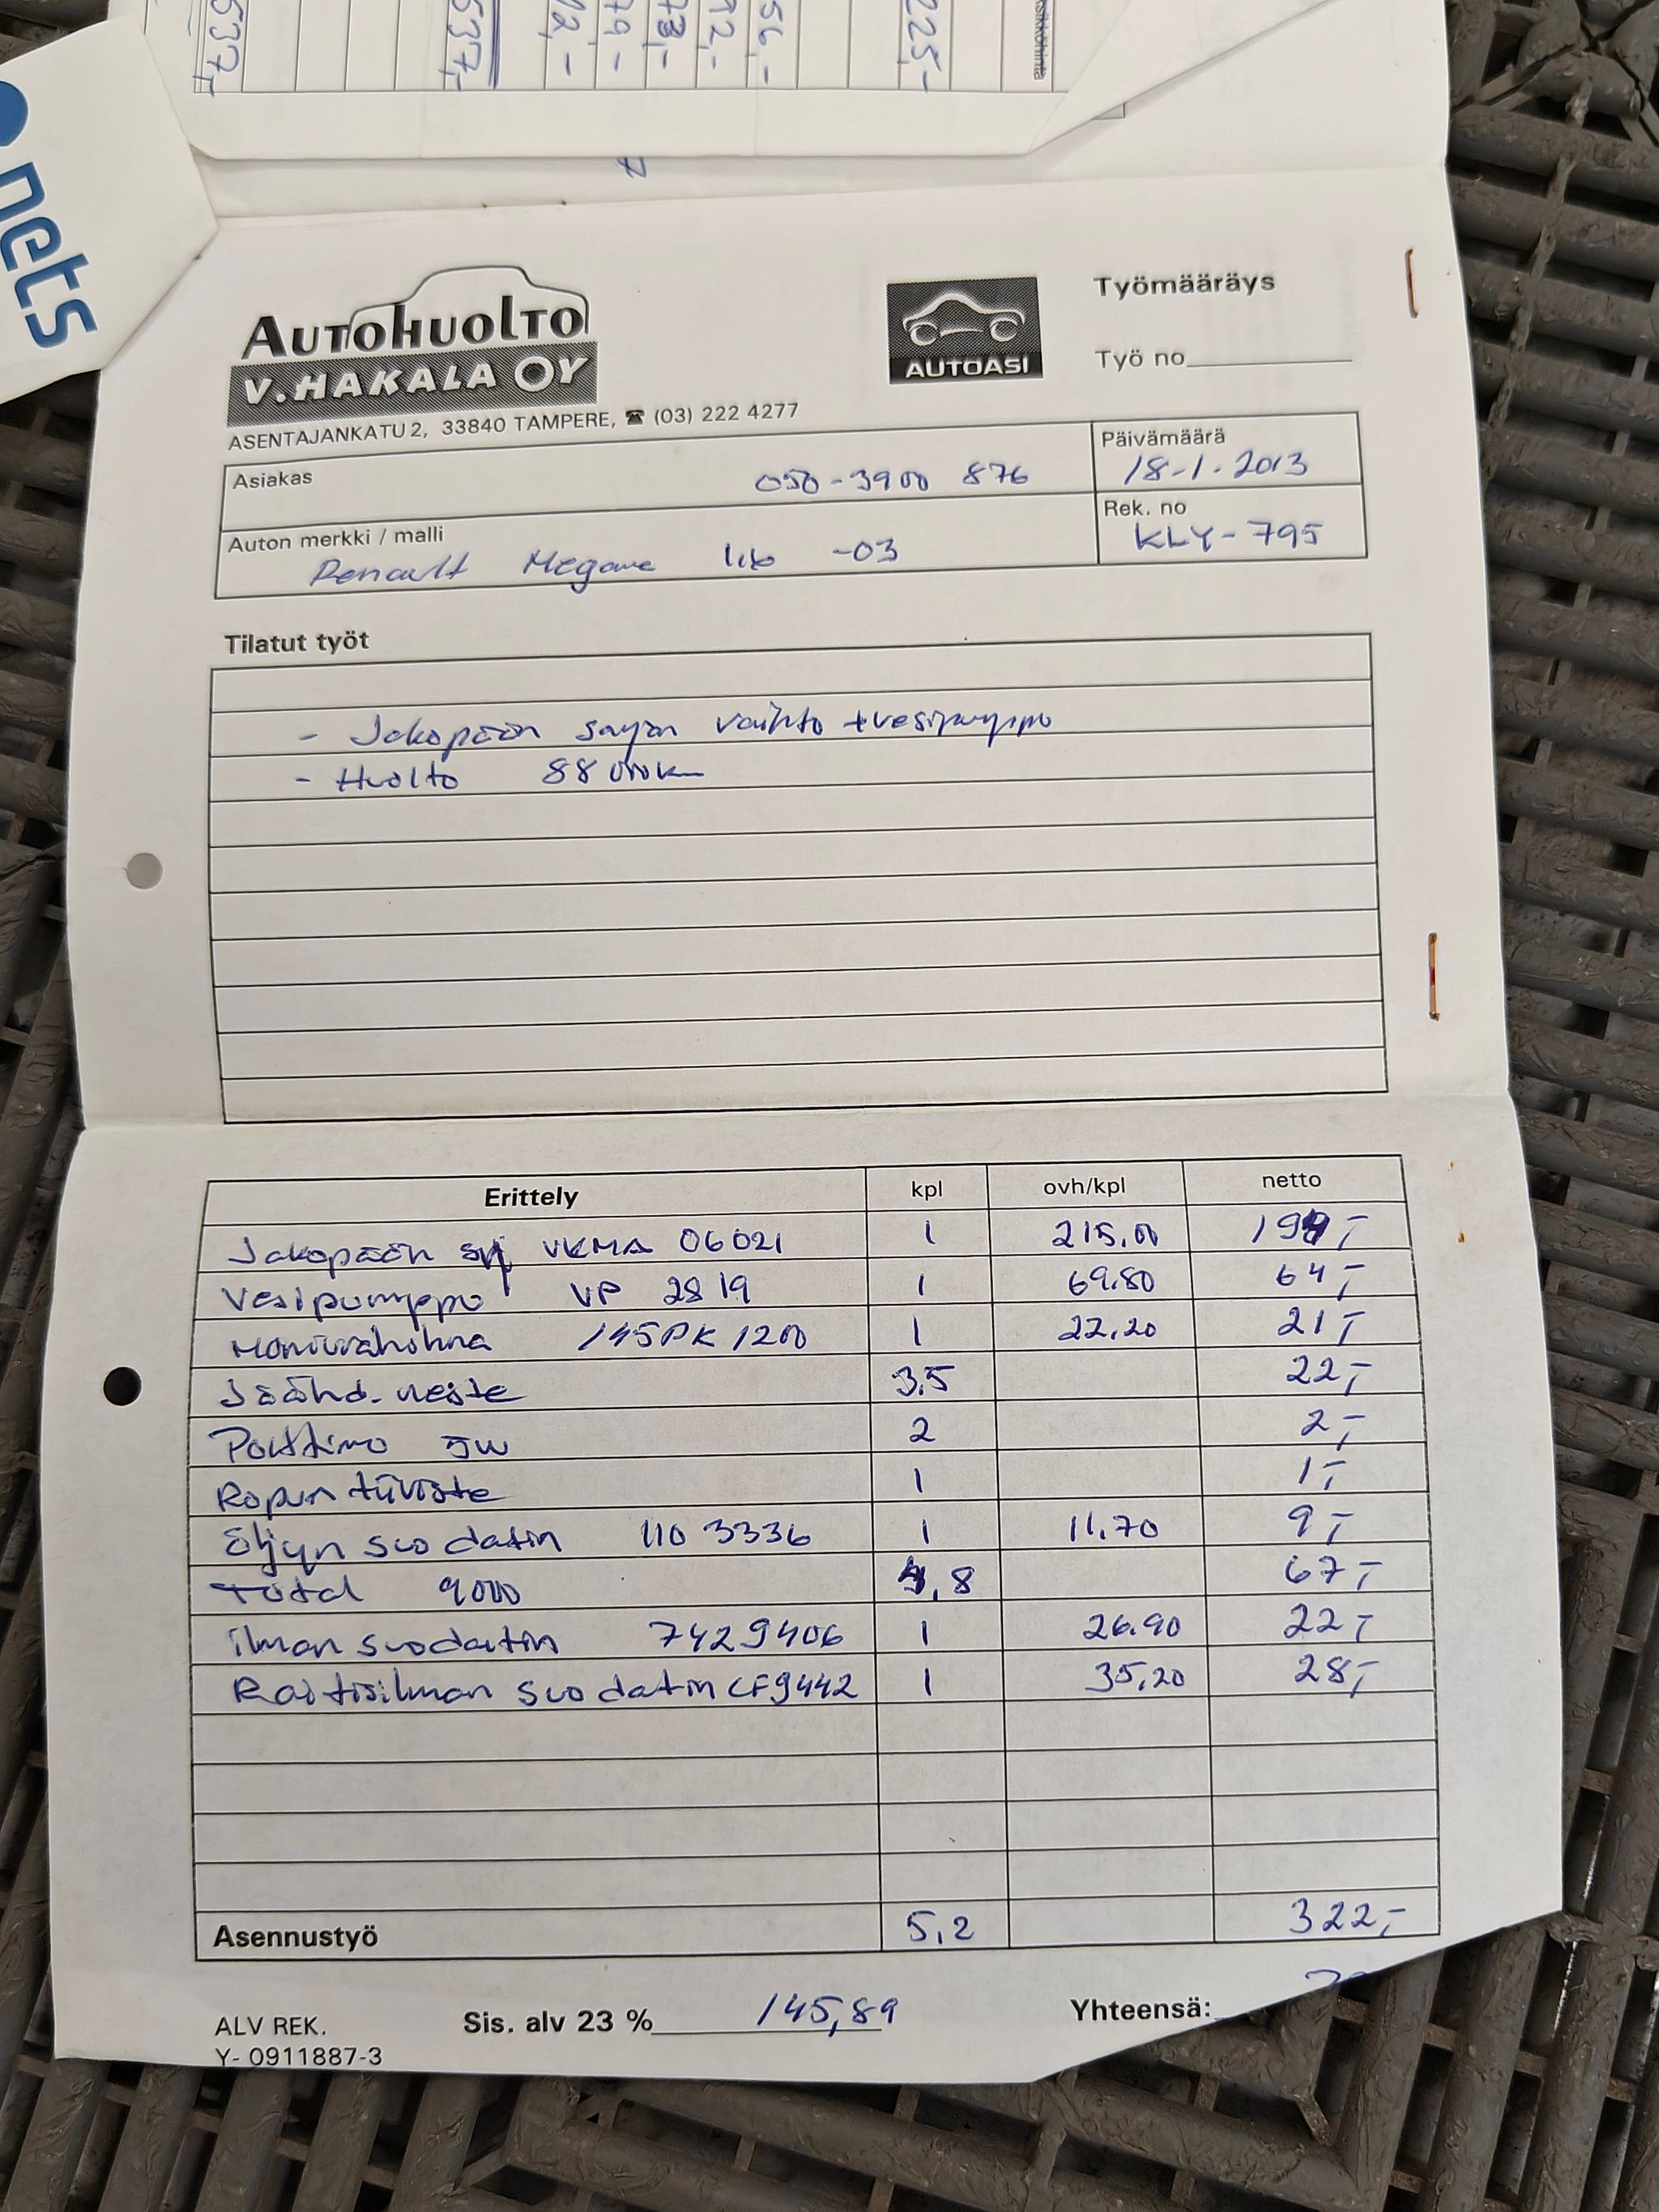 537,-
537,-
12,-
79,-
73,-
92,-
56,-
225,-
nets
AUTOHUOLTO
V. HAKALA OY
ASENTAJANKATU 2, 33840 TAMPERE, ☎ (03) 222 4277
AUTOASI
Työmääräys
Työ no
Asiakas 050-3900 876
Päivämäärä
18-1-2013
Auton merkki / malli
Renault Megane 1,6 -03
Rek. no
KLY-795
Tilatut työt
- Jakopään sarjan vaihto + vesipumppu
- Huolto 88 000km
Erittely kpl ovh/kpl netto
Jakopään srj VKMA 06021 1 215,00 199,-
Vesipumppu VP 2819 1 69.80 64,-
Moniurahihna 145PK1200 1 22,20 21,-
Jäähd. neste 3,5 22,-
Polttimo 5W 2 2,-
Ropun tiiviste 1 1,-
Öljyn suodatin 110 3336 1 11,70 9,-
Total 9000 4,8 67,-
ilman suodatin 7429406 1 26.90 22,-
Raitisilman suodatin CF9442 1 35,20 28,-
Asennustyö 5,2 322,-
ALV REK.
Y- 0911887-3
Sis. alv 23 % 145,89
Yhteensä: